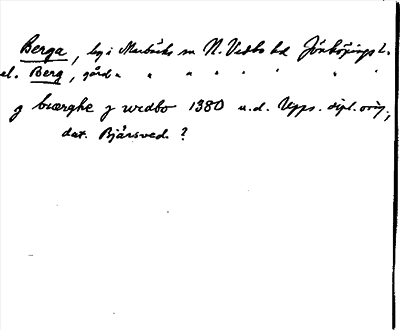 Berga, by i Marbäcks sn N. Vedbo hd Jönköpings l.
el. Berg, gård " " " " " " "
j bærghe j wedbo 1380 u.d. Upps. dipl. orig,
dat. Bjärsved. ?